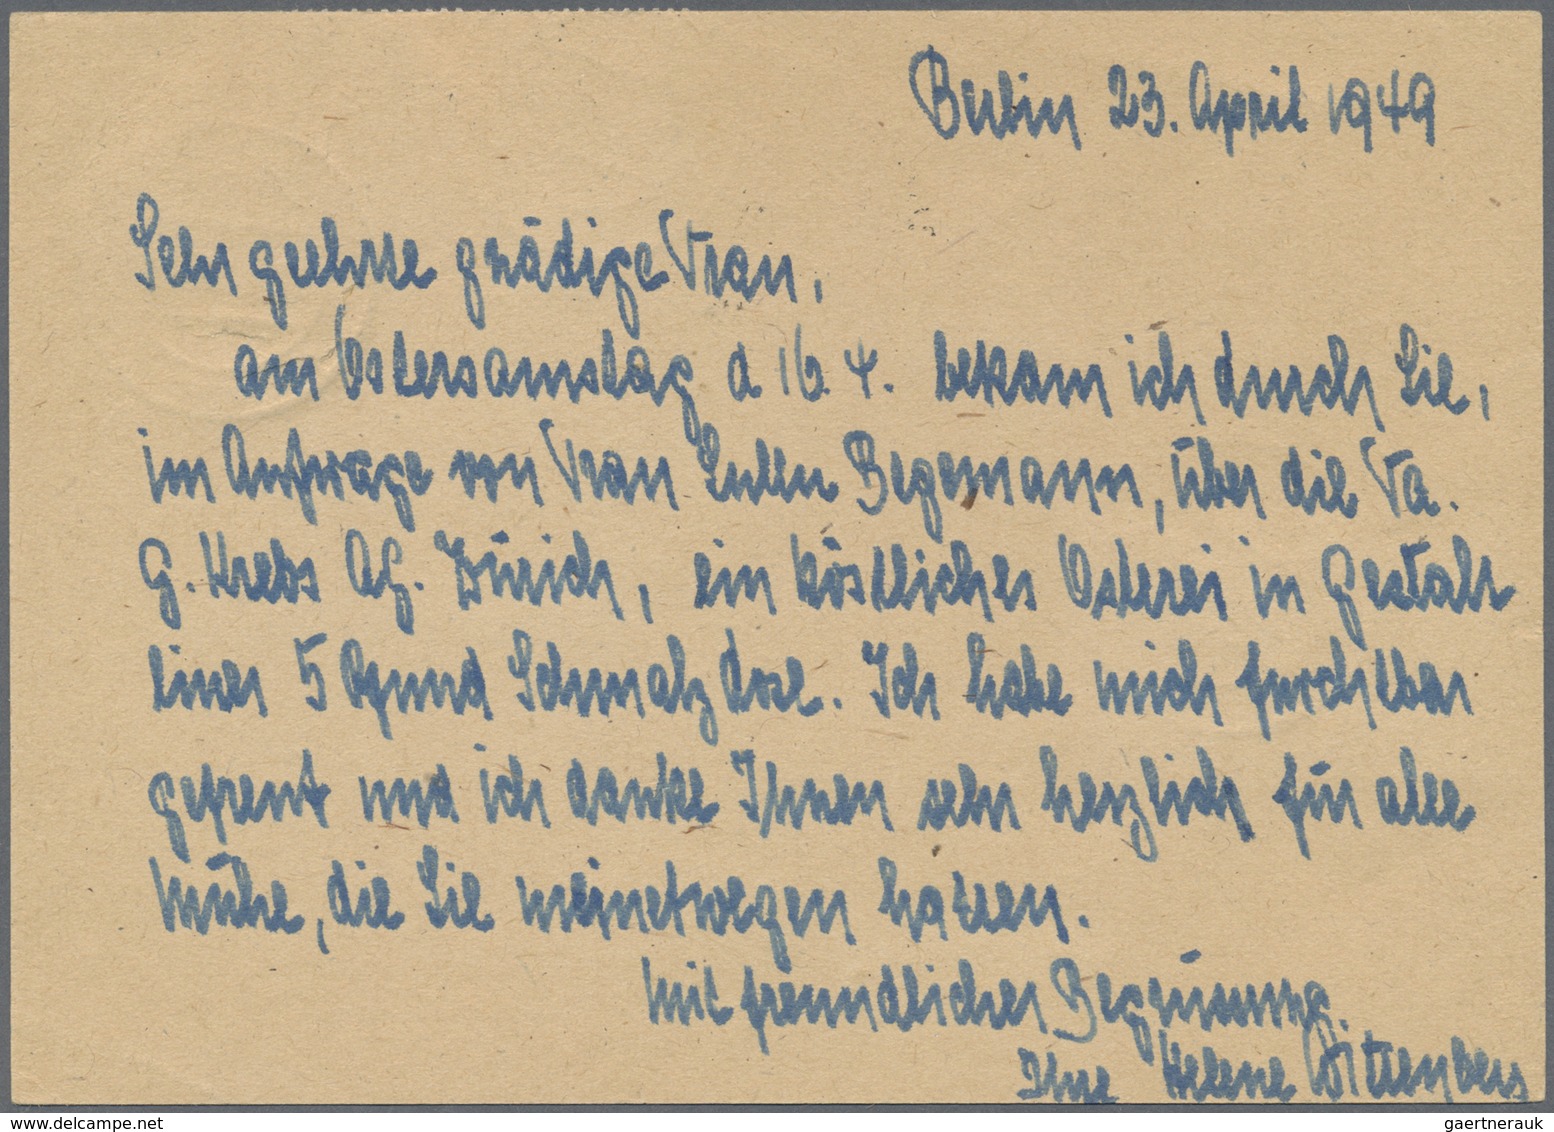 Berlin 23. April 1949
Sehr geehrte gnädige Frau,
am Ostersamstag d 16. 4. bekam ich durch Sie,
im Auftrage von Frau Begemann, über die Fa.
G. Krebs AG. Zürich, ein köstliches Osterei in Gestalt
einer 5 Pfund Schmalzdose. Ich habe mich furchtbar
gefreut und ich danke Ihnen sehr herzlich für alle
Mühe, die Sie meinetwegen hatten.
Mit freundlicher Begrüssung.
Ihre Helene
gaertnerauk @ delcampe.net